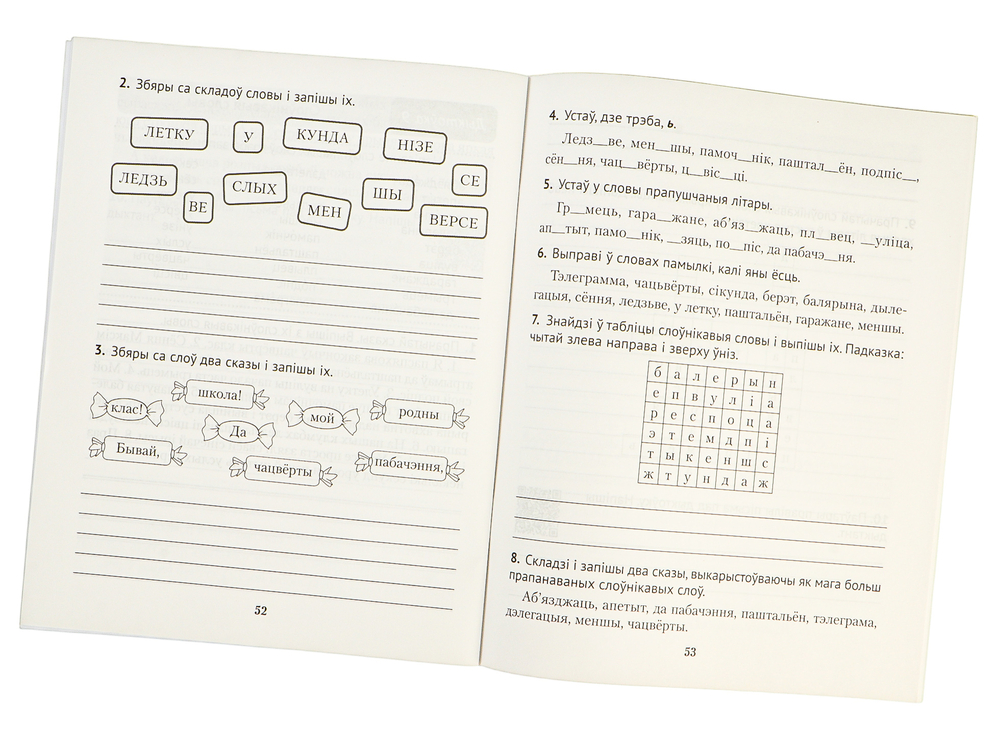 2. Збяры са складоў словы і запішы іх.
ЛЕТКУ У КУНДА НІЗЕ
ЛЕДЗЬ СЛЫХ ШЫ СЕ
ВЕ МЕН ВЕРСЕ
3. Збяры са слоў два сказы і запішы іх.
школа!
клас! мой родны
Да
Бывай, чацвёрты пабачэння,
52
4. Устаў, дзе трэба, ь.
Ледз__ве, мен__шы, памоч__нік, паштал__ён, подпіс__,
сён__ня, чац__вёрты, ц__віс__ці.
5. Устаў у словы прапушчаныя літары.
Гр__мець, гара__жане, аб’яз__жаць, пл__вец, __уліца,
ап__тыт, памо__нік, __зяць, по__піс, да пабачэ__ня.
6. Выправі ў словах памылкі, калі яны ёсць.
Тэлеграмма, чацьвёрты, сікунда, берэт, балярына, дыле-
гацыя, сёння, ледзьве, у летку, паштальён, гаражане, меншы.
7. Знайдзі ў табліцы слоўнікавыя словы і выпішы іх. Падказка:
чытай злева направа і зверху ўніз.
б а л е р ы н
е п в у л і а
р е с п о ц а
э т е м д п і
т ы к е н ш с
ж т у н д а ж
8. Складзі і запішы два сказы, выкарыстоўваючы як мага больш
прапанаваных слоўнікавых слоў.
Аб’язджаць, апетыт, да пабачэння, паштальён, тэлеграма,
дэлегацыя, меншы, чацвёрты.
53